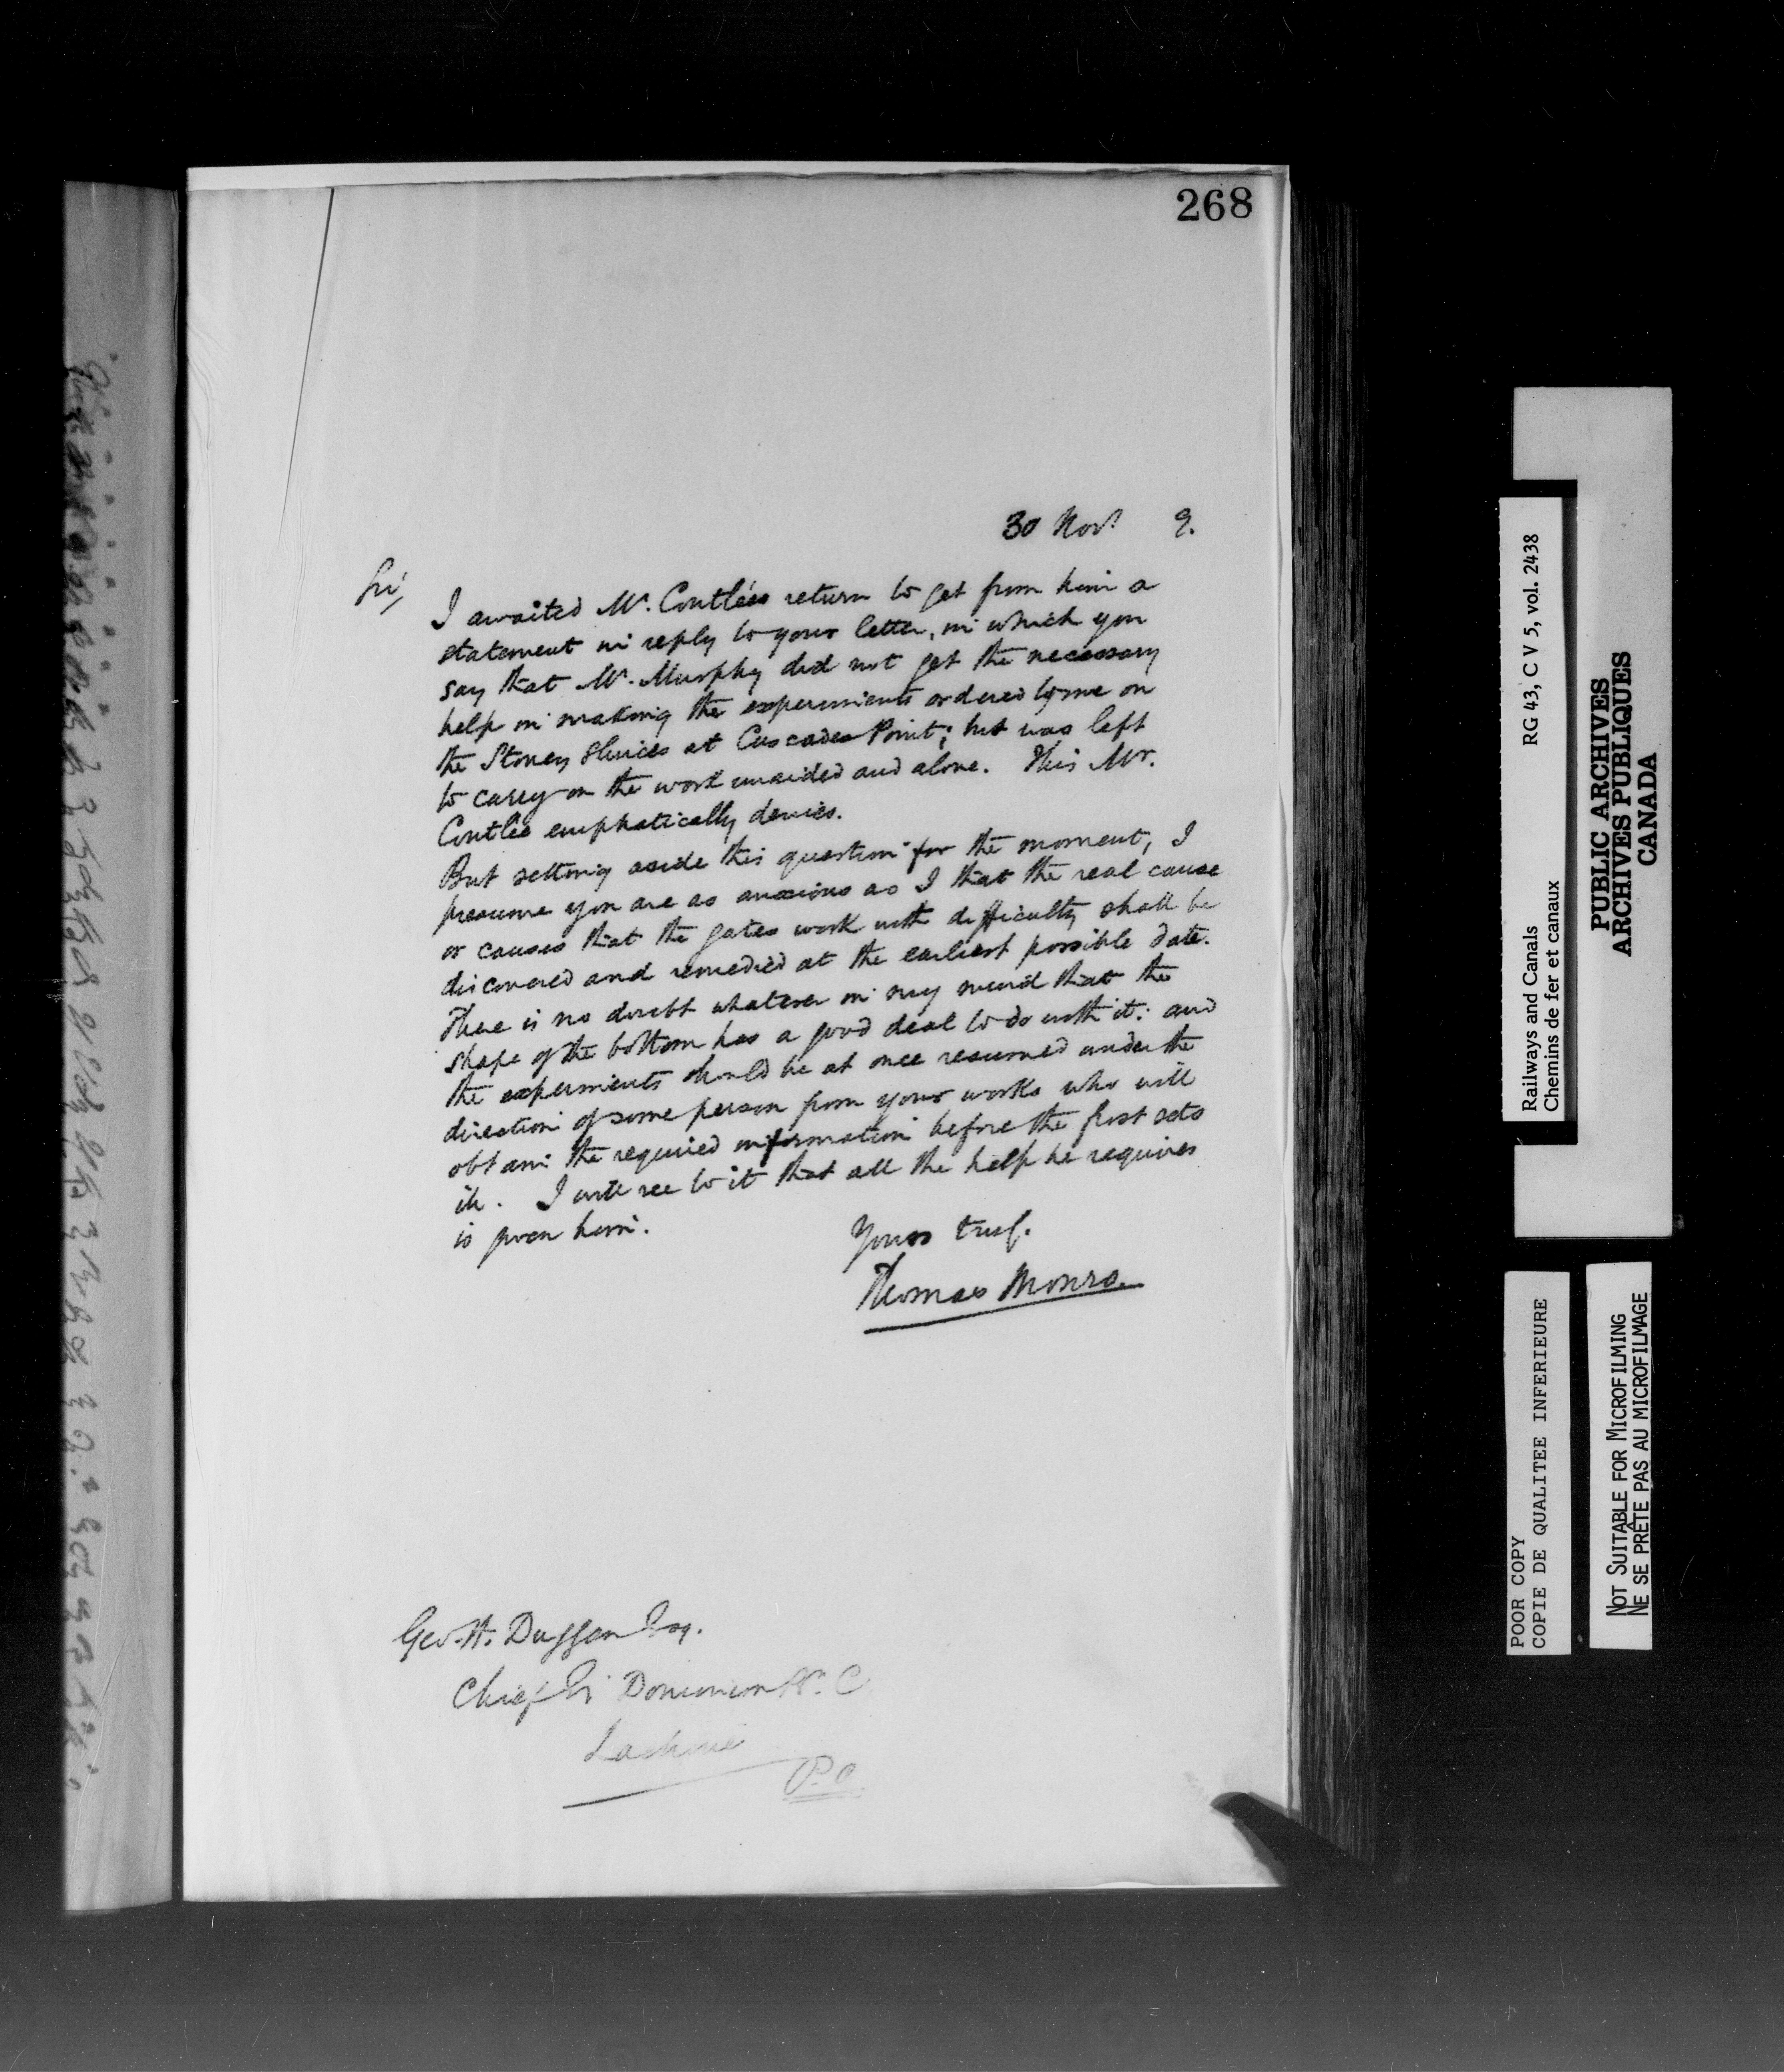 268
30 Nov! 9.
Sir,
I awaited Mr. Coutlée's return to get from him a
statement in reply to your letter, in which you
say that Mr. Murphy did not get the necessary
help in making the experiments ordered by me on
the Stoney Sluices at Cascades Point; but was left
to carry on the work unaided and alone. This Mr.
Coutlée emphatically denies.
But setting aside this question for the moment, I
presume you are as anxious as I that the real cause
or causes that the gates work with difficulty shall be
discovered and remedied at the earliest possible date.
There is no doubt whatever in my mind that the
shape of the bottom has a good deal to do with it: and
the experiments should be at once resumed under the
direction of some person from your works who will
obtain the required information before the frost sets
in. I will see to it that all the help he requires
is given him.
Yours truly.
Thomas Monro
Geo. H. Duggan Esq.
Chief En Dominion B. C
Lachine
P.Q
RG 43, C V 5, vol. 2438
Railways and Canals
Chemins de fer et canaux
PUBLIC ARCHIVES
ARCHIVES PUBLIQUES
CANADA
POOR COPY
COPIE DE QUALITEE INFERIEURE
NOT SUITABLE FOR MICROFILMING
NE SE PRÊTE PAS AU MICROFILMAGE